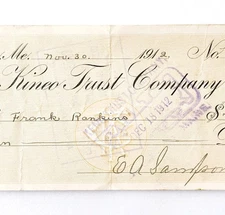 Me. Nov. 30. 1912 No.
Kineo Trust Company
Frank Rankins $
E A Sampson